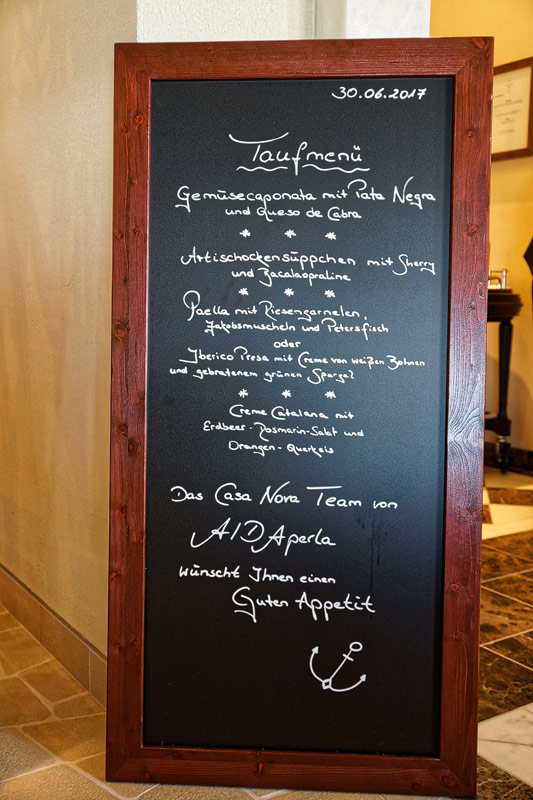 30.06.2017
Taufmenü
Gemüsecaponata mit Pata Negra
und Queso de Cabra
* * *
Artischockensüppchen mit Sherry
und Bacalaopraline
* * *
Paella mit Riesengarnelen,
Jakobsmuscheln und Petersfisch
oder
Iberico Presa mit Creme von weißen Bohnen
und gebratenem grünen Spargel
* * *
Creme Catalana mit
Erdbeer-Rosmarin-Salat und
Orangen-Quarkeis
Das Casa Nova Team von
AIDAperla
wünscht Ihnen einen
Guten Appetit